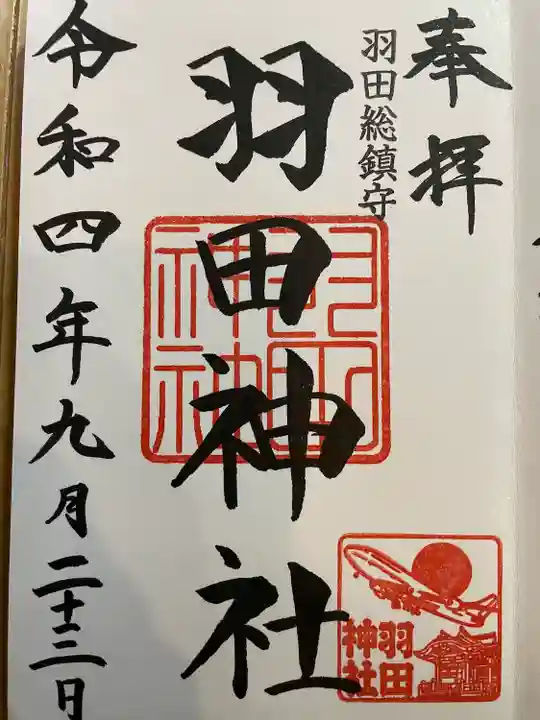 奉拝
羽田総鎮守
羽田神社
羽田神社
令和四年九月二十三日
羽田
神社